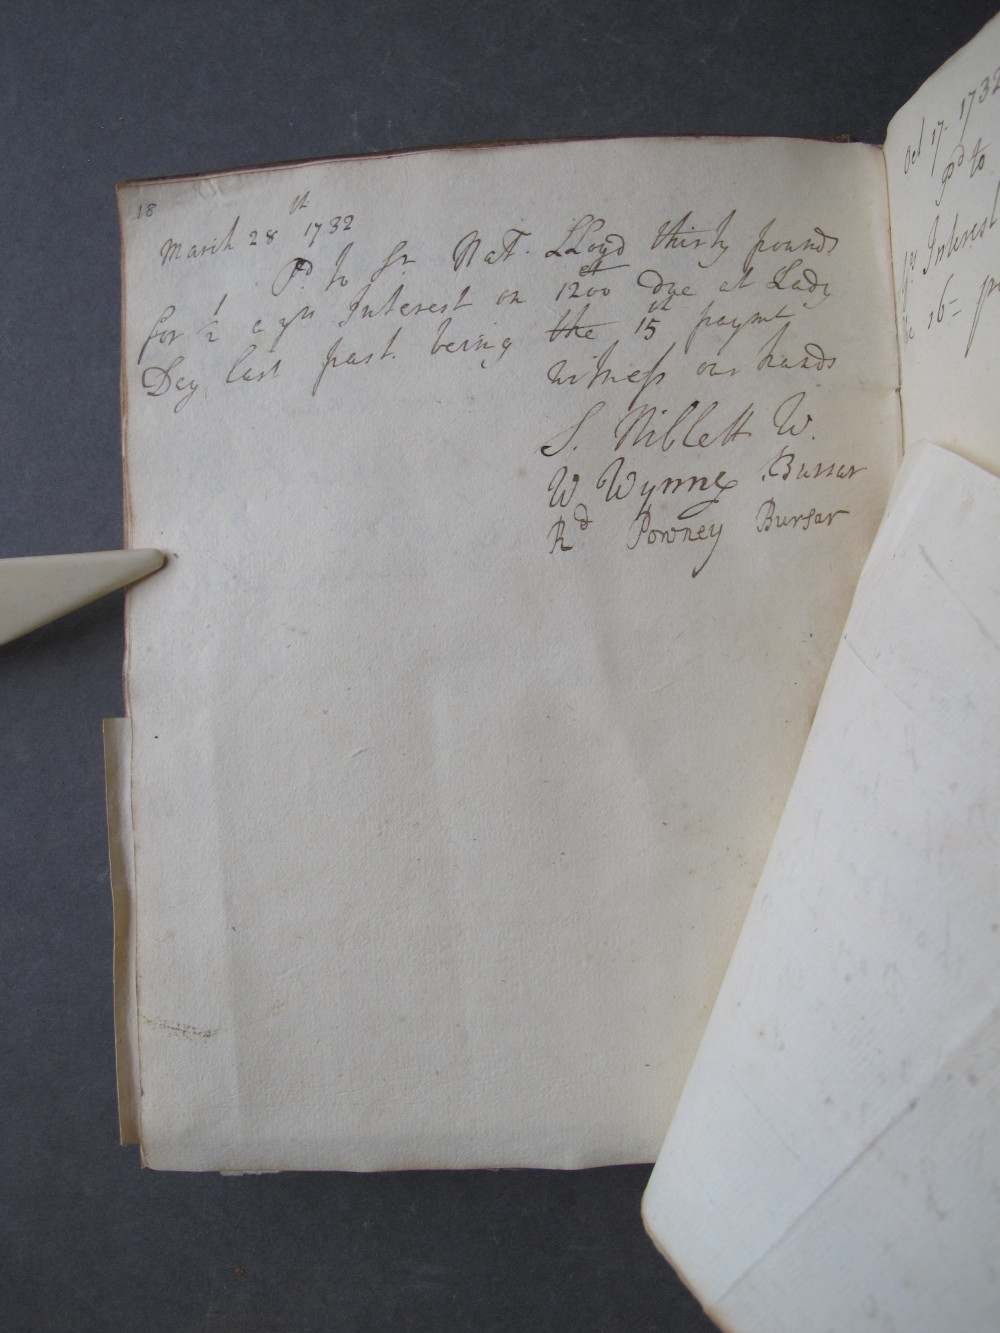 18
March 28th 1732
Pd to Sr Nat. LLoyd thirty pounds
for ½ a yrs Interest on 1200 due at Lady
Day last past. being the 15th paymt
witness our hands
S. Niblett W.
W Wynne Bursar
Rd Powney Bursar
Oct 17. 1732
pd to
yrs Interest
the 16-